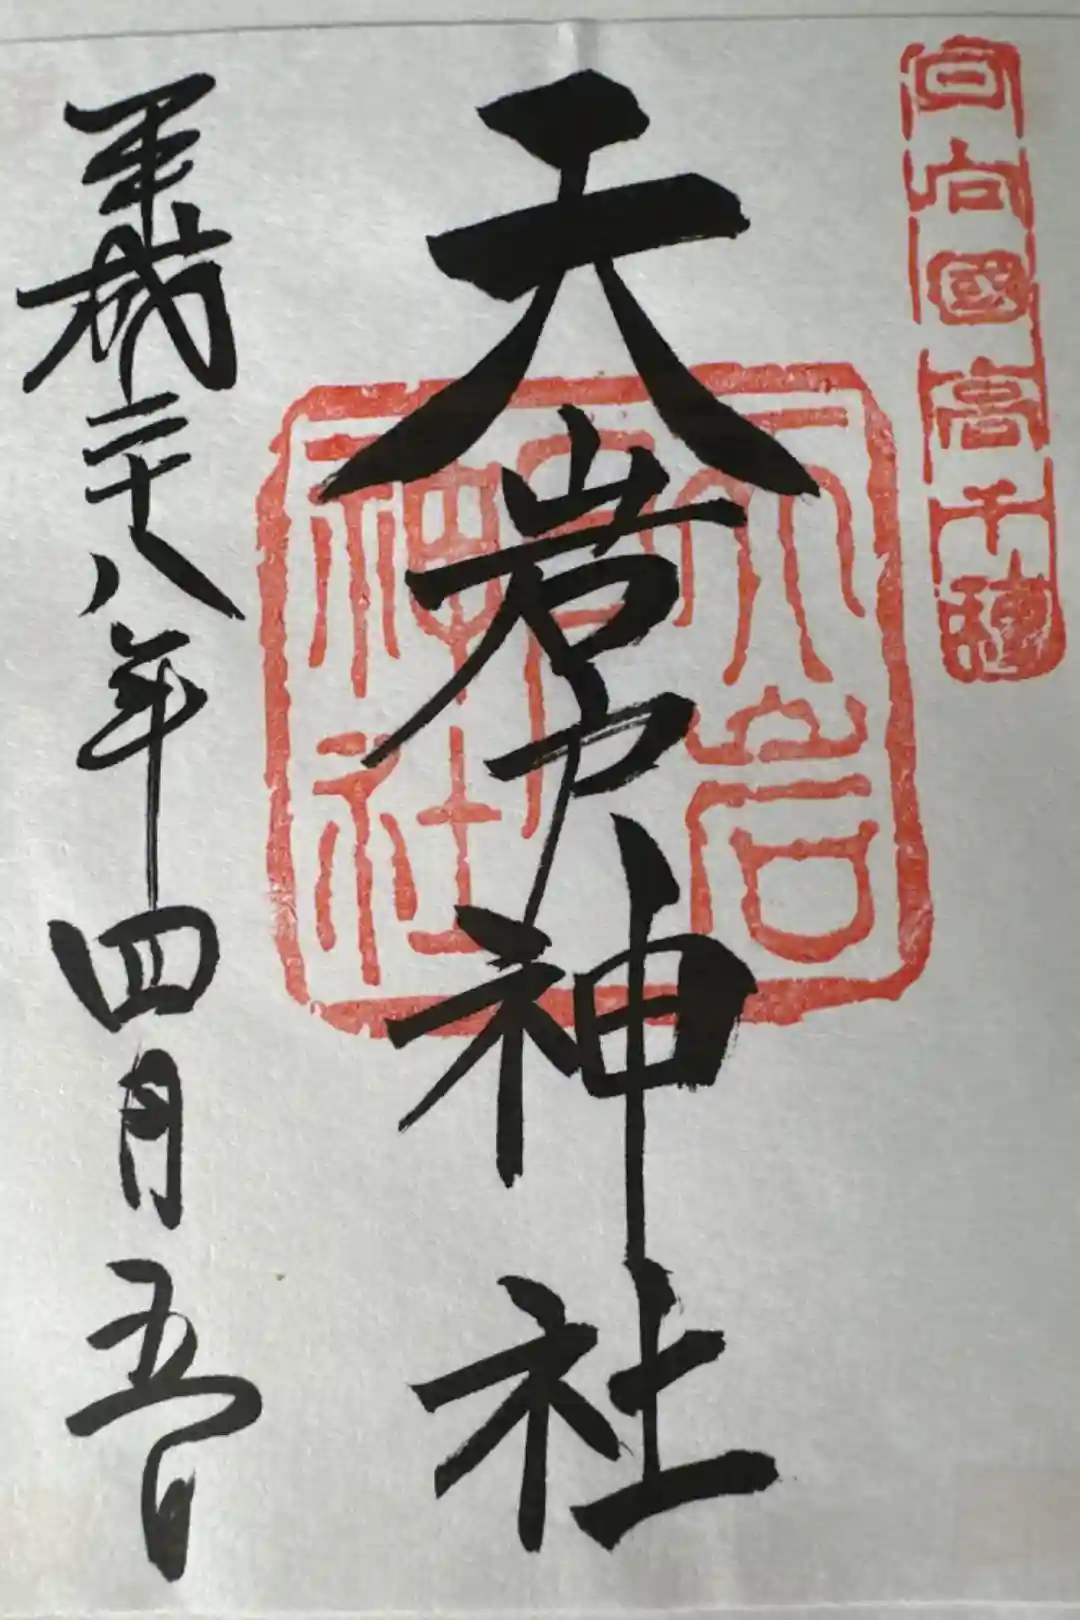 日向国高千穂
天岩戸神社
天岩戸神社
平成二十八年四月五日